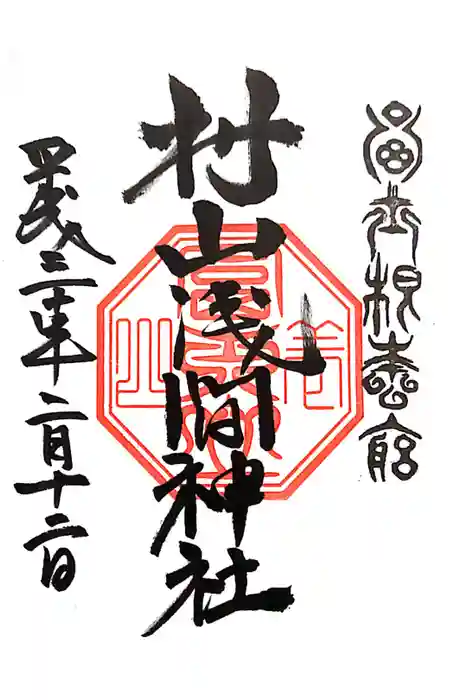 冨士根本宮
村山浅間神社
平成三十年二月十二日